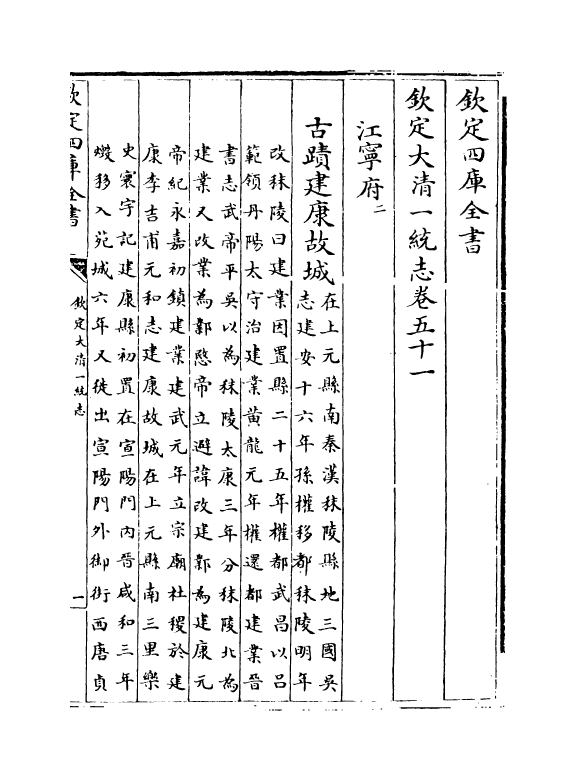 欽定四庫全書
欽定大清一統志卷五十一
江寧府二
古蹟建康故城
在上元縣南秦漢秣陵縣地三國吳
志建安十六年孫權移都秣陵明年
改秣陵曰建業因置縣二十五年權都武昌以呂
範領丹陽太守治建業黄龍元年權還都建業晉
書志武帝平吳以為秣陵太康三年分秣陵北為
建業又改業為鄴愍帝立避諱改建鄴為建康元
帝紀永嘉初鎮建業建武元年立宗廟社稷於建
康李吉甫元和志建康故城在上元縣南三里樂
史寰宇記建康縣初置在宣陽門内晉咸和三年
燬移入苑城六年又徙出宣陽門外御街西唐貞
欽定四庫全書
欽定大清一統志
一